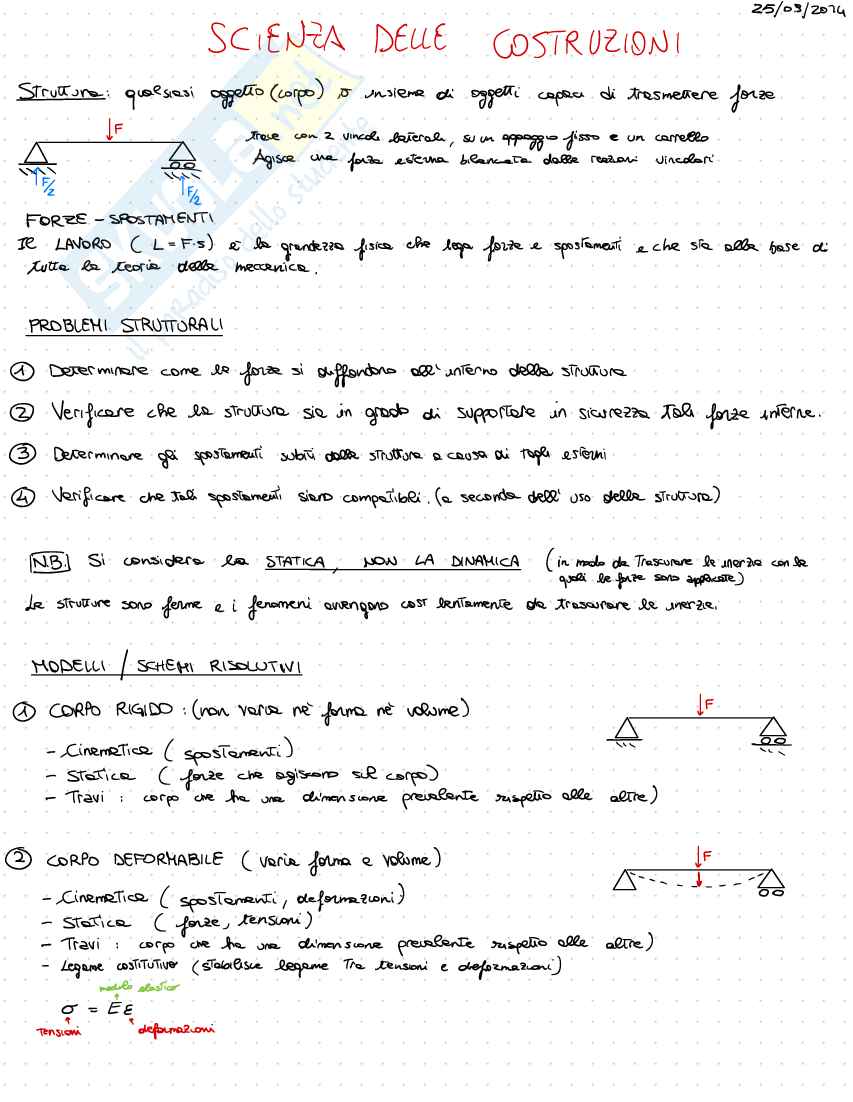 25/03/2014
SCIENZA DELLE COSTRUZIONI
Struttura: qualsiasi oggetto (corpo) o insieme di oggetti capaci di trasmettere forze
F
trave con 2 vincoli laterali, su un appoggio fisso e un carrello
Agisce una forza esterna bilanciata dalle reazioni vincolari
F/2
F/2
FORZE - SPOSTAMENTI
Il LAVORO ( L = F·s ) è la grandezza fisica che lega forze e spostamenti e che sta alla base di
tutta la teoria della meccanica.
PROBLEMI STRUTTURALI
1 Determinare come le forze si diffondono all'interno della struttura
2 Verificare che la struttura sia in grado di supportare in sicurezza tali forze interne.
3 Determinare gli spostamenti subiti dalla struttura a causa di tagli esterni
4 Verificare che tali spostamenti siano compatibili. (a seconda dell'uso della struttura)
N.B. Si considera la STATICA, NON LA DINAMICA (in modo da trascurare le inerzie con le
quali le forze sono applicate)
Le strutture sono ferme e i fenomeni avvengono così lentamente da trascurare le inerzie.
MODELLI / SCHEMI RISOLUTIVI
1 CORPO RIGIDO : (non varia nè forma nè volume)
F
- Cinematica ( spostamenti)
- Statica ( forze che agiscono sul corpo)
- Travi : corpo che ha una dimensione prevalente rispetto alle altre)
2 CORPO DEFORMABILE ( varia forma e volume)
F
- Cinematica ( spostamenti, deformazioni)
- Statica ( forze, tensioni)
- Travi : corpo che ha una dimensione prevalente rispetto alle altre)
- Legame costitutivo (stabilisce legame tra tensioni e deformazioni)
modulo elastico
σ = Eε
tensioni deformazioni
SKUOLA.net
il paradiso dello studente